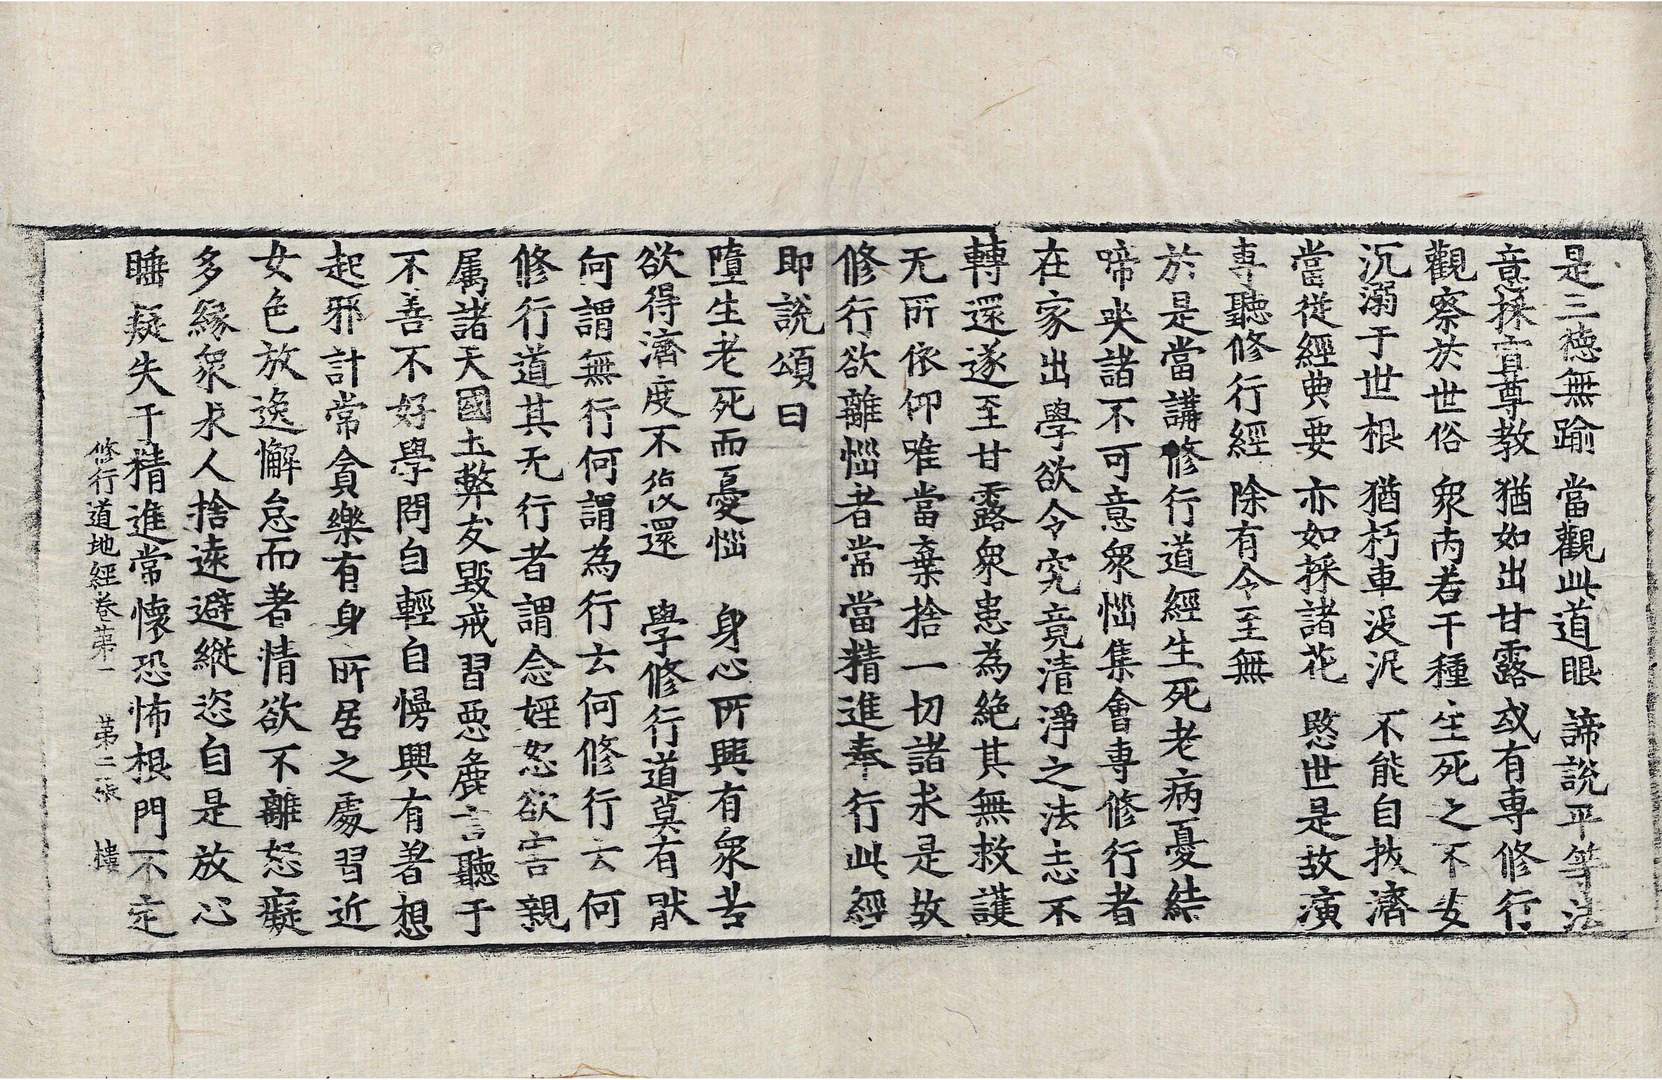 是三德無踰　當觀此道眼　諦說平等法
意採宣尊教　猶如出甘露　或有専修行
觀察於世俗　衆苦若干種　生死之不安
沉溺于世根　猶朽車没泥　不能自拔濟
當從經典要　亦如採諸花　愍世是故演
専聽修行經　除有令至無
於是當講修行道經生死老病憂結
啼哭諸不可意衆惱集會専修行者
在家出學欲令究竟清淨之法志不
轉還遂至甘露衆患為絶其無救護
无所依仰唯當棄捨一切諸求是故
修行欲離惱者常當精進奉行此經
即說頌曰
墮生老死而憂惱　身心所興有衆苦
欲得濟度不復還　學修行道莫有猒
何謂無行何謂為行云何修行云何
修行道其无行者謂念婬怒欲害親
属諸天國土弊友毀戒習惡麁言聽于
不善不好學問自輕自慢興有著想
起邪計常貪樂有身所居之處習近
女色放逸懈怠而著情欲不離怒癡
多緣衆求人捨遠避縱恣自是放心
睡癡失于精進常懷恐怖根門不定
修行道地經卷第一　第二張　樓